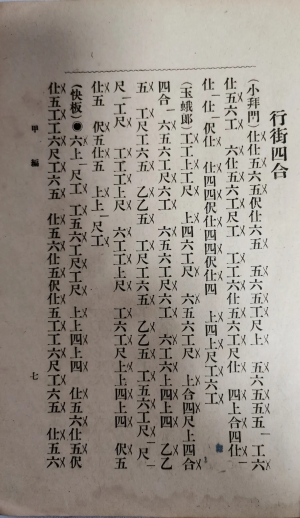 行街四合
(小拜門)仕仕五六五伬仕六五 五六五工尺上 五六五五五一工六
仕五六工 六仕五六工尺工 工工六仕五六工尺仕 四上合四仕一
仕一仕一伬仕 仕四四伬仕四四伬仕四 上四上尺工六工
(玉娥郎)工工上工尺 上四六工尺四 上合四尺上四合
四合一六五六工尺六工 六五六工尺六工 六工六上四上四 乙乙
五 工尺工六五 乙乙五 工尺工六五 乙乙五 工五六工尺一尺
尺一工尺 工工工上尺 六工工工上尺 工六工尺上上四上四 伬五
仕五 伬五仕五 上上一尺工
(快板)●六上一尺工 工五六工尺工尺 上上四上四 仕五六仕五伬
仕五工工六尺工六五 仕五六仕五伬仕五工工六尺工六五 仕五六
甲編 七